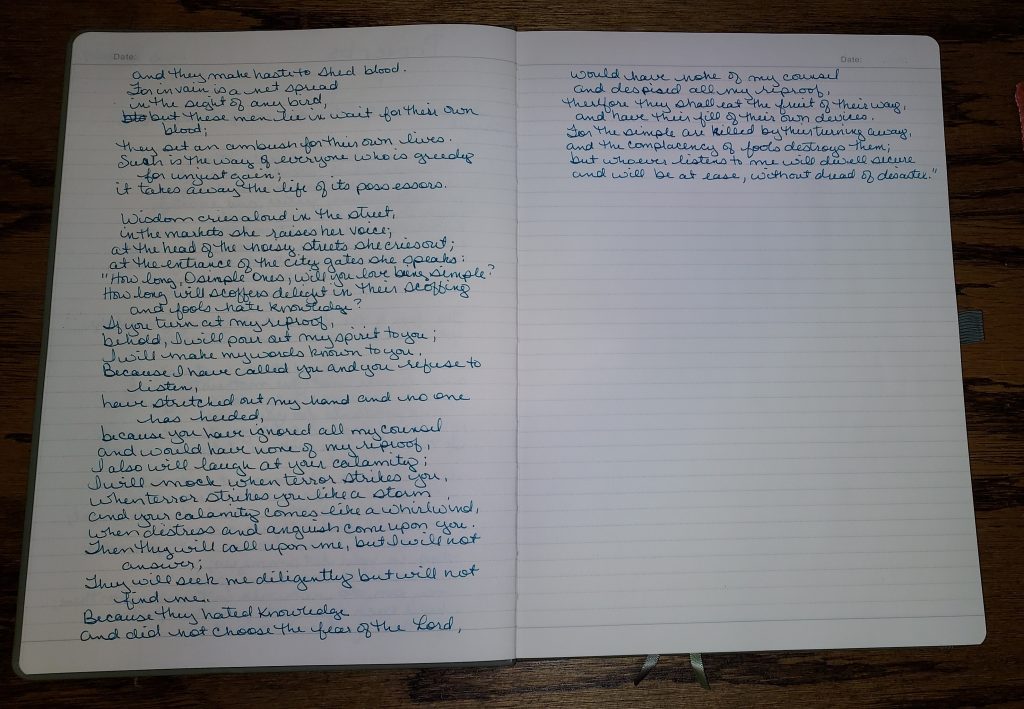 Date:
and they make haste to shed blood.
For in vain is a net spread
in the sight of any bird,
but these men lie in wait for their own
blood;
they set an ambush for their own lives.
Such is the way of everyone who is greedy
for unjust gain;
it takes away the life of its possessors.
Wisdom cries aloud in the street,
in the markets she raises her voice;
at the head of the noisy streets she cries out;
at the entrance of the city gates she speaks:
"How long, O simple ones, will you love being simple?
How long will scoffers delight in their scoffing
and fools hate knowledge?
If you turn at my reproof,
behold, I will pour out my spirit to you;
I will make my words known to you.
Because I have called you and you refuse to
listen,
have stretched out my hand and no one
has heeded,
because you have ignored all my counsel
and would have none of my reproof,
I also will laugh at your calamity;
I will mock when terror strikes you,
when terror strikes you like a storm
and your calamity comes like a whirlwind,
when distress and anguish come upon you.
Then they will call upon me, but I will not
answer;
They will seek me diligently but will not
find me.
Because they hated knowledge
and did not choose the fear of the Lord,
Date:
would have none of my counsel
and despised all my reproof,
therefore they shall eat the fruit of their way,
and have their fill of their own devices.
For the simple are killed by their turning away,
and the complacency of fools destroys them;
but whoever listens to me will dwell secure
and will be at ease, without dread of disaster."